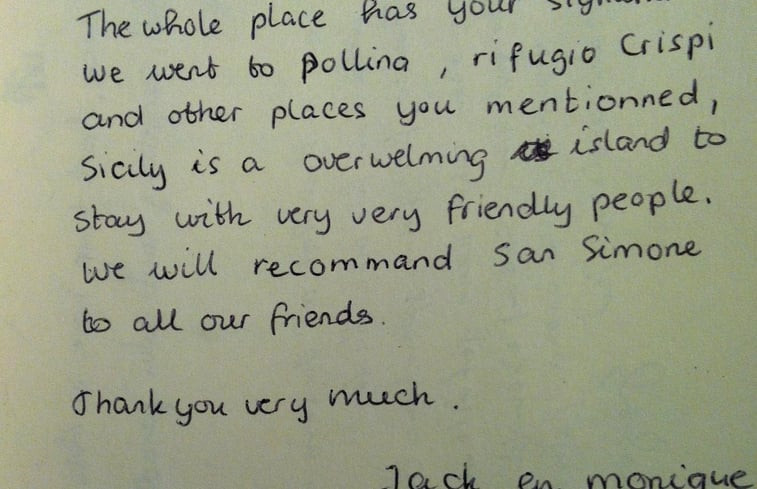 The whole place has your
we went to Pollina , rifugio Crispi
and other places you mentionned,
Sicily is a overwelming island to
stay with very very friendly people.
We will recommand San Simone
to all our friends.
Thank you very much .
Jack en monique